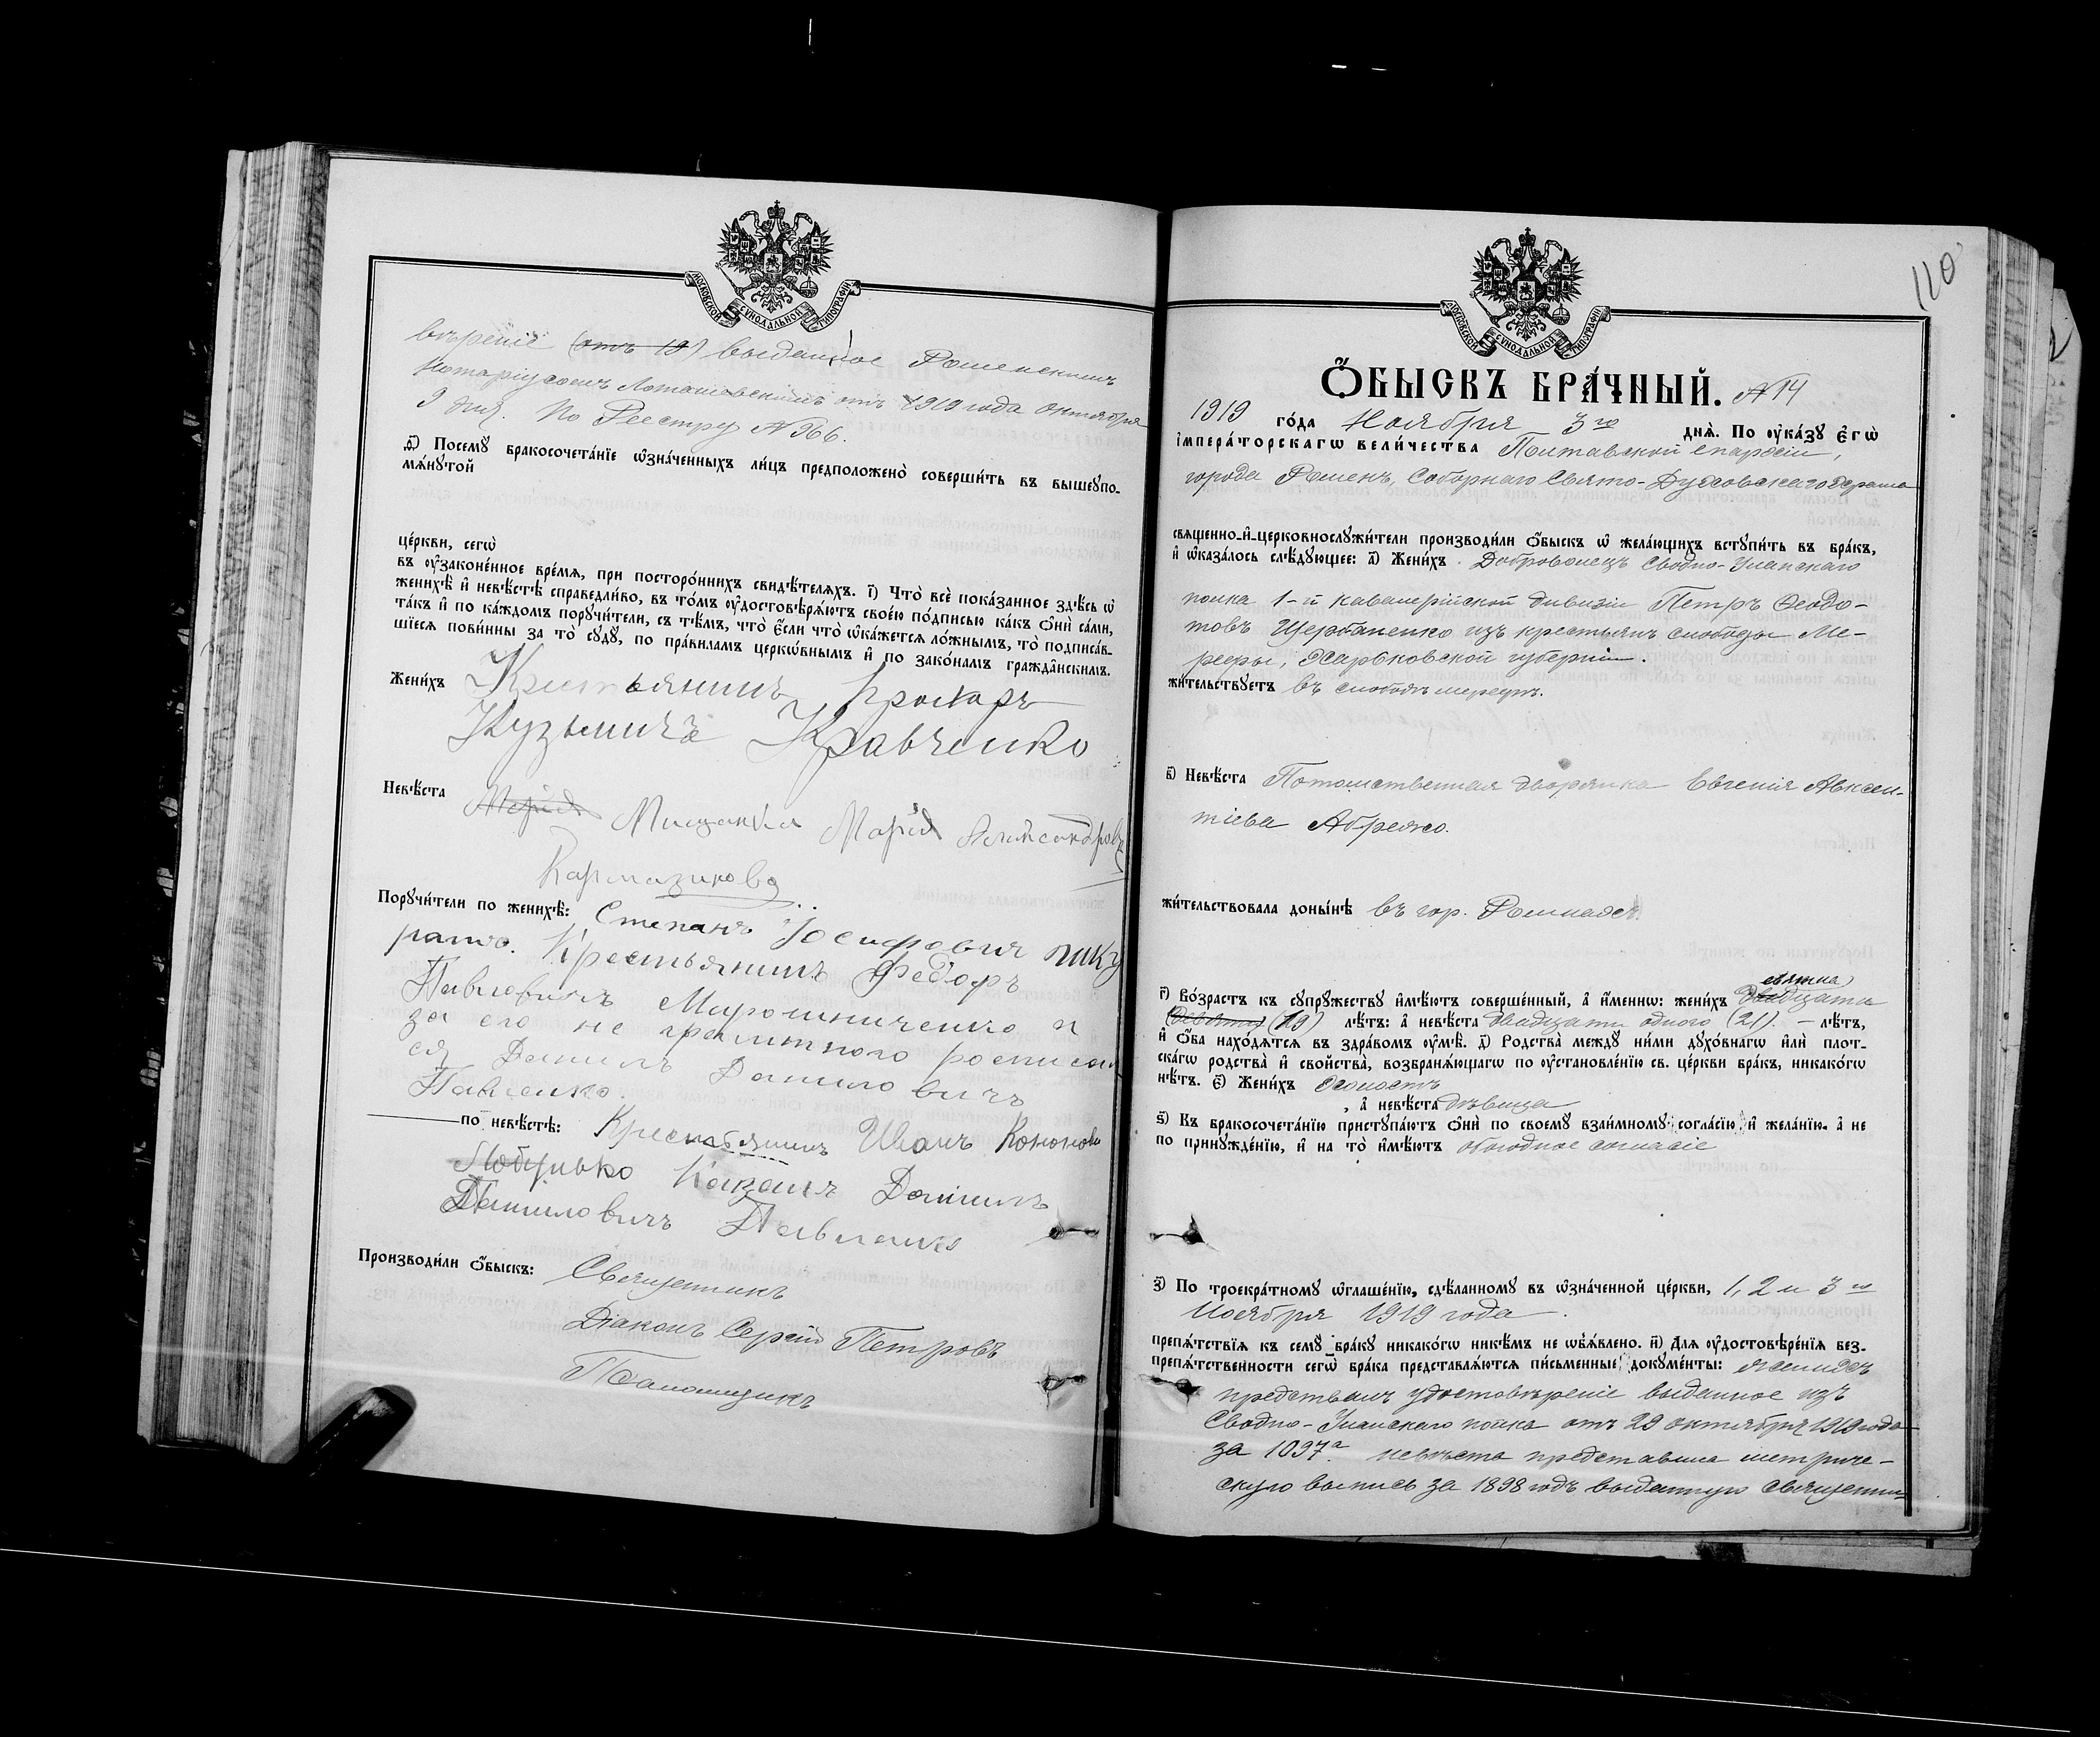 МОСКОВСКОЙ СѴНОДАЛЬНОЙ ТИПОГРАФІИ
вѣреніе (отъ 19) выданное Роменскимъ
Нотаріусомъ отъ 1919 года Октября
9 дня. По Реестру № 366.
Посемꙋ бракосочета́нїе ѡ҆зна́ченныхъ ли́цъ предположено̀ соверши́ть въ вышеꙋпо-
мѧ́нꙋтой
це́ркви, сегѡ̀
въ ᲂу҆зако́ненное вре́мѧ, при посторо́ннихъ свидѣ́телѧхъ. г҃) Что̀ всѐ пока́занное здѣ́сь ѡ҆
женихѣ̀ и҆ невѣ́стѣ справедли́во, въ то́мъ ᲂу҆достовѣрѧ́ютъ свое́ю по́дписью ка́къ ѻ҆нѝ са́ми,
та́къ и҆ по ка́ждомъ порꙋчи́тели, съ тѣ́мъ, что̀ є҆́сли что̀ ѡ҆ка́жетсѧ ло́жнымъ, то̀ подписа́в-
шїесѧ пови́нны за то̀ сꙋдꙋ̀, по пра́виламъ церко́внымъ и҆ по зако́намъ гражда́нскимъ.
Жени́хъ Крестьянинъ Прокоръ
Кузьмичъ Кравченко
Невѣ́ста Марія Мищанка Марія Александров
Кармазикова
Порꙋчи́тели по женихѣ̀: Степанъ Іосифович Пику
Крестьянинъ Федоръ
Павловичъ Мирошниченко а
за его не грамтного росписал
ся Данилъ Данило вичъ
Павленко.
по невѣ́стѣ: Крестьянинъ Иванъ Кононов
Козакъ Данилъ
Даниловичъ Павленко
Производи́ли ѻ҆́быскъ: Священникъ
Діаконъ Сергій Петровъ
Псаломщикъ
110
МОСКОВСКОЙ СѴНОДАЛЬНОЙ ТИПОГРАФІИ
Ѻ҆́БЫСКЪ БРА́ЧНЫЙ. № 14
1919 го́да Ноября 3го днѧ̀. По ᲂу҆ка́зꙋ Є҆гѡ̀
І҆мпера́торскагѡ вели́чества Полтавской епархіи,
города Роменъ, Соборнаго Свято-Духовскаго храма
свѧщенно-и҆-церковнослꙋжи́тели производи́ли ѻ҆́быскъ ѡ҆ жела́ющихъ встꙋпи́ть въ бра́къ,
и҆ ѡ҆каза́лось слѣ́дꙋющее: а҃) Жени́хъ Доброволецъ Сводно-Уланскаго
полка 1-й кавалерійской дивизіи Петръ Ѳеодо-
товъ Щербаненко изъ крестьянъ слободы Ме-
рефы, Харьковской губерніи.
жи́тельствꙋетъ въ слободѣ мерефѣ.
в҃) Невѣ́ста Потомственная дворянка Евгенія Авксен-
тіева
жи́тельствовала доны́нѣ въ гор. Ромнахъ
г҃) Во́зрастъ къ сꙋпрꙋ́жествꙋ и҆мѣ́ютъ соверше́нный, а҆ и҆́меннѡ: жени́хъ двадцати
(19) лѣ́тъ: а҆ невѣ́ста двадцати одного (21). – лѣ́тъ,
и҆ ѻ҆́ба нахо́дѧтсѧ въ здра́вомъ ᲂу҆мѣ̀. д҃) Родства̀ междꙋ ни́ми дꙋхо́внагѡ и҆лѝ плот-
ска́гѡ родства̀ и҆ свойства̀, возбранѧ́ющагѡ по ᲂу҆становле́нїю св. це́ркви бра́къ, никако́гѡ
нѣ́тъ. є҃) Жени́хъ Холостъ
, а҆ невѣ́ста дѣвица
ѕ҃) Къ бракосочета́нїю пристꙋпа́ютъ ѻ҆нѝ по своемꙋ̀ взаи́мномꙋ согла́сїю и҆ жела́нїю, а҆ не
по принꙋжде́нїю, и҆ на то̀ и҆мѣ́ютъ обоюдное согласіе
з҃) По троекра́тномꙋ ѡ҆глаше́нїю, сдѣ́ланномꙋ въ ѡ҆зна́ченной це́ркви, 1, 2 и 3го
Ноября 1919 года.
препѧ́тствїѧ къ семꙋ̀ бра́кꙋ никако́гѡ никѣ́мъ не ѡ҆бъѧ́влено. и҃) Длѧ ᲂу҆достовѣре́нїѧ без-
препѧ́тственности сегѡ̀ бра́ка представлѧ́ютсѧ пи́сьменные докꙋме́нты: женихъ
представилъ удостовѣреніе выданное изъ
Сводно-Уланскаго полка отъ 29 октября 1919 года
за 1097а невѣста представила метриче-
скую выпись за 1898 годъ выданную Священни-